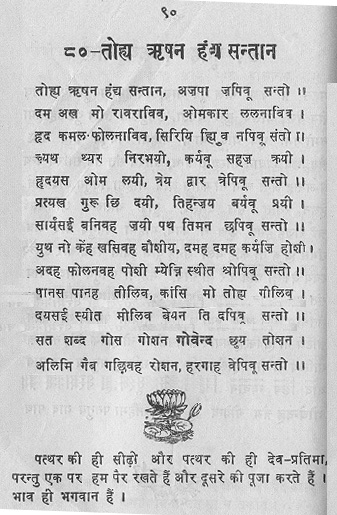 ९०
८०-तोह्य ऋषन हंद्य सन्तान
तोह्य ऋषन हंद्य सन्तान, अजपा जपिवू सन्तो ।।
दम अख मो रावराविव, ओमकार ललनाविव ।
हृद कमल फोलनाविव, सिरियि ह्युव नपिवू संतो ।।
च्यथ थ्यर निरभयी, कर्यवू सहज क्रयी ।
हृदयस ओम लयी, त्रेय द्वार त्रेपिवू सन्तो ।।
प्रत्यख गुरू छि दयी, तिहन्जय बर्यवू प्रयी ।
सार्यसंई बनिवह जयी पथ तिमन छपिवू सन्तो ।।
युथ नो केंह खसिवह बौशीय, दमह दमह कर्यजि होशी ।
अदह फोलनवह पोशी म्येन्नि स्थीत श्रोपिवू सन्तो ।।
पानस पानह तीलिव, कांसि मो तोह्य गीलिव ।
दयसई स्थीत मीलिव बेयन ति दपिवू सन्तो ।।
सत शब्द गोस गोशन गोवेन्द छुय तोशन ।
अलिमि गैब गछिवह रोशन, हरगाह वेपिवू सन्तो ।।
पत्थर की ही सीढ़ी और पत्थर की ही देव-प्रतिमा,
परन्तु एक पर हम पैर रखते हैं और दूसरे की पूजा करते हैं ।
भाव ही भगवान हैं ।